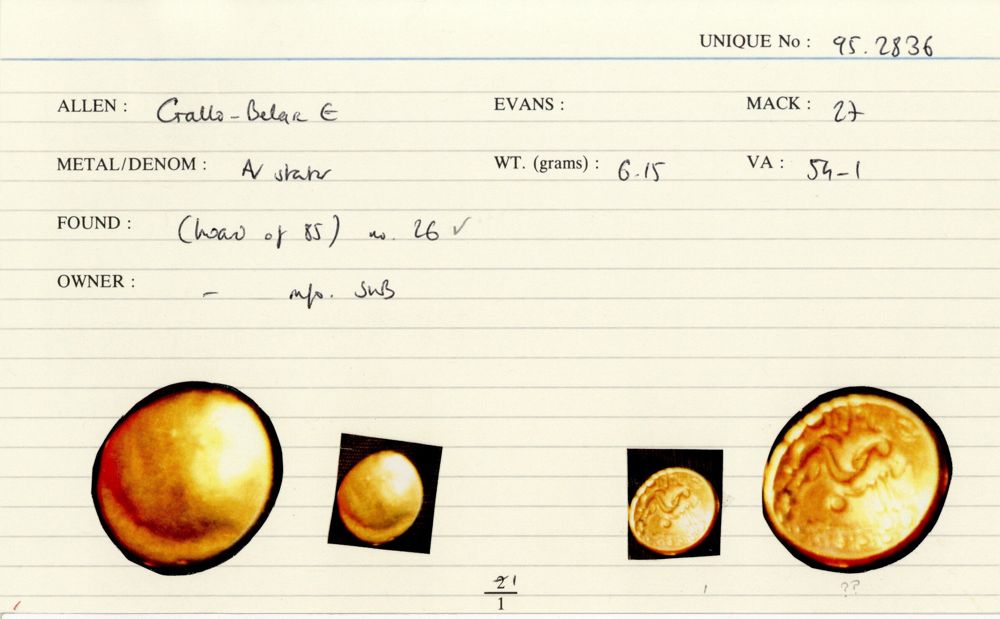 UNIQUE No : 95.2836
ALLEN : Gallo-Belgic E EVANS : MACK : 27
METAL/DENOM : AV stater WT. (grams) : 6.15 VA : 54-1
FOUND : (hoard of 85) no. 26 ✓
OWNER : - info. SWB
21
1
??